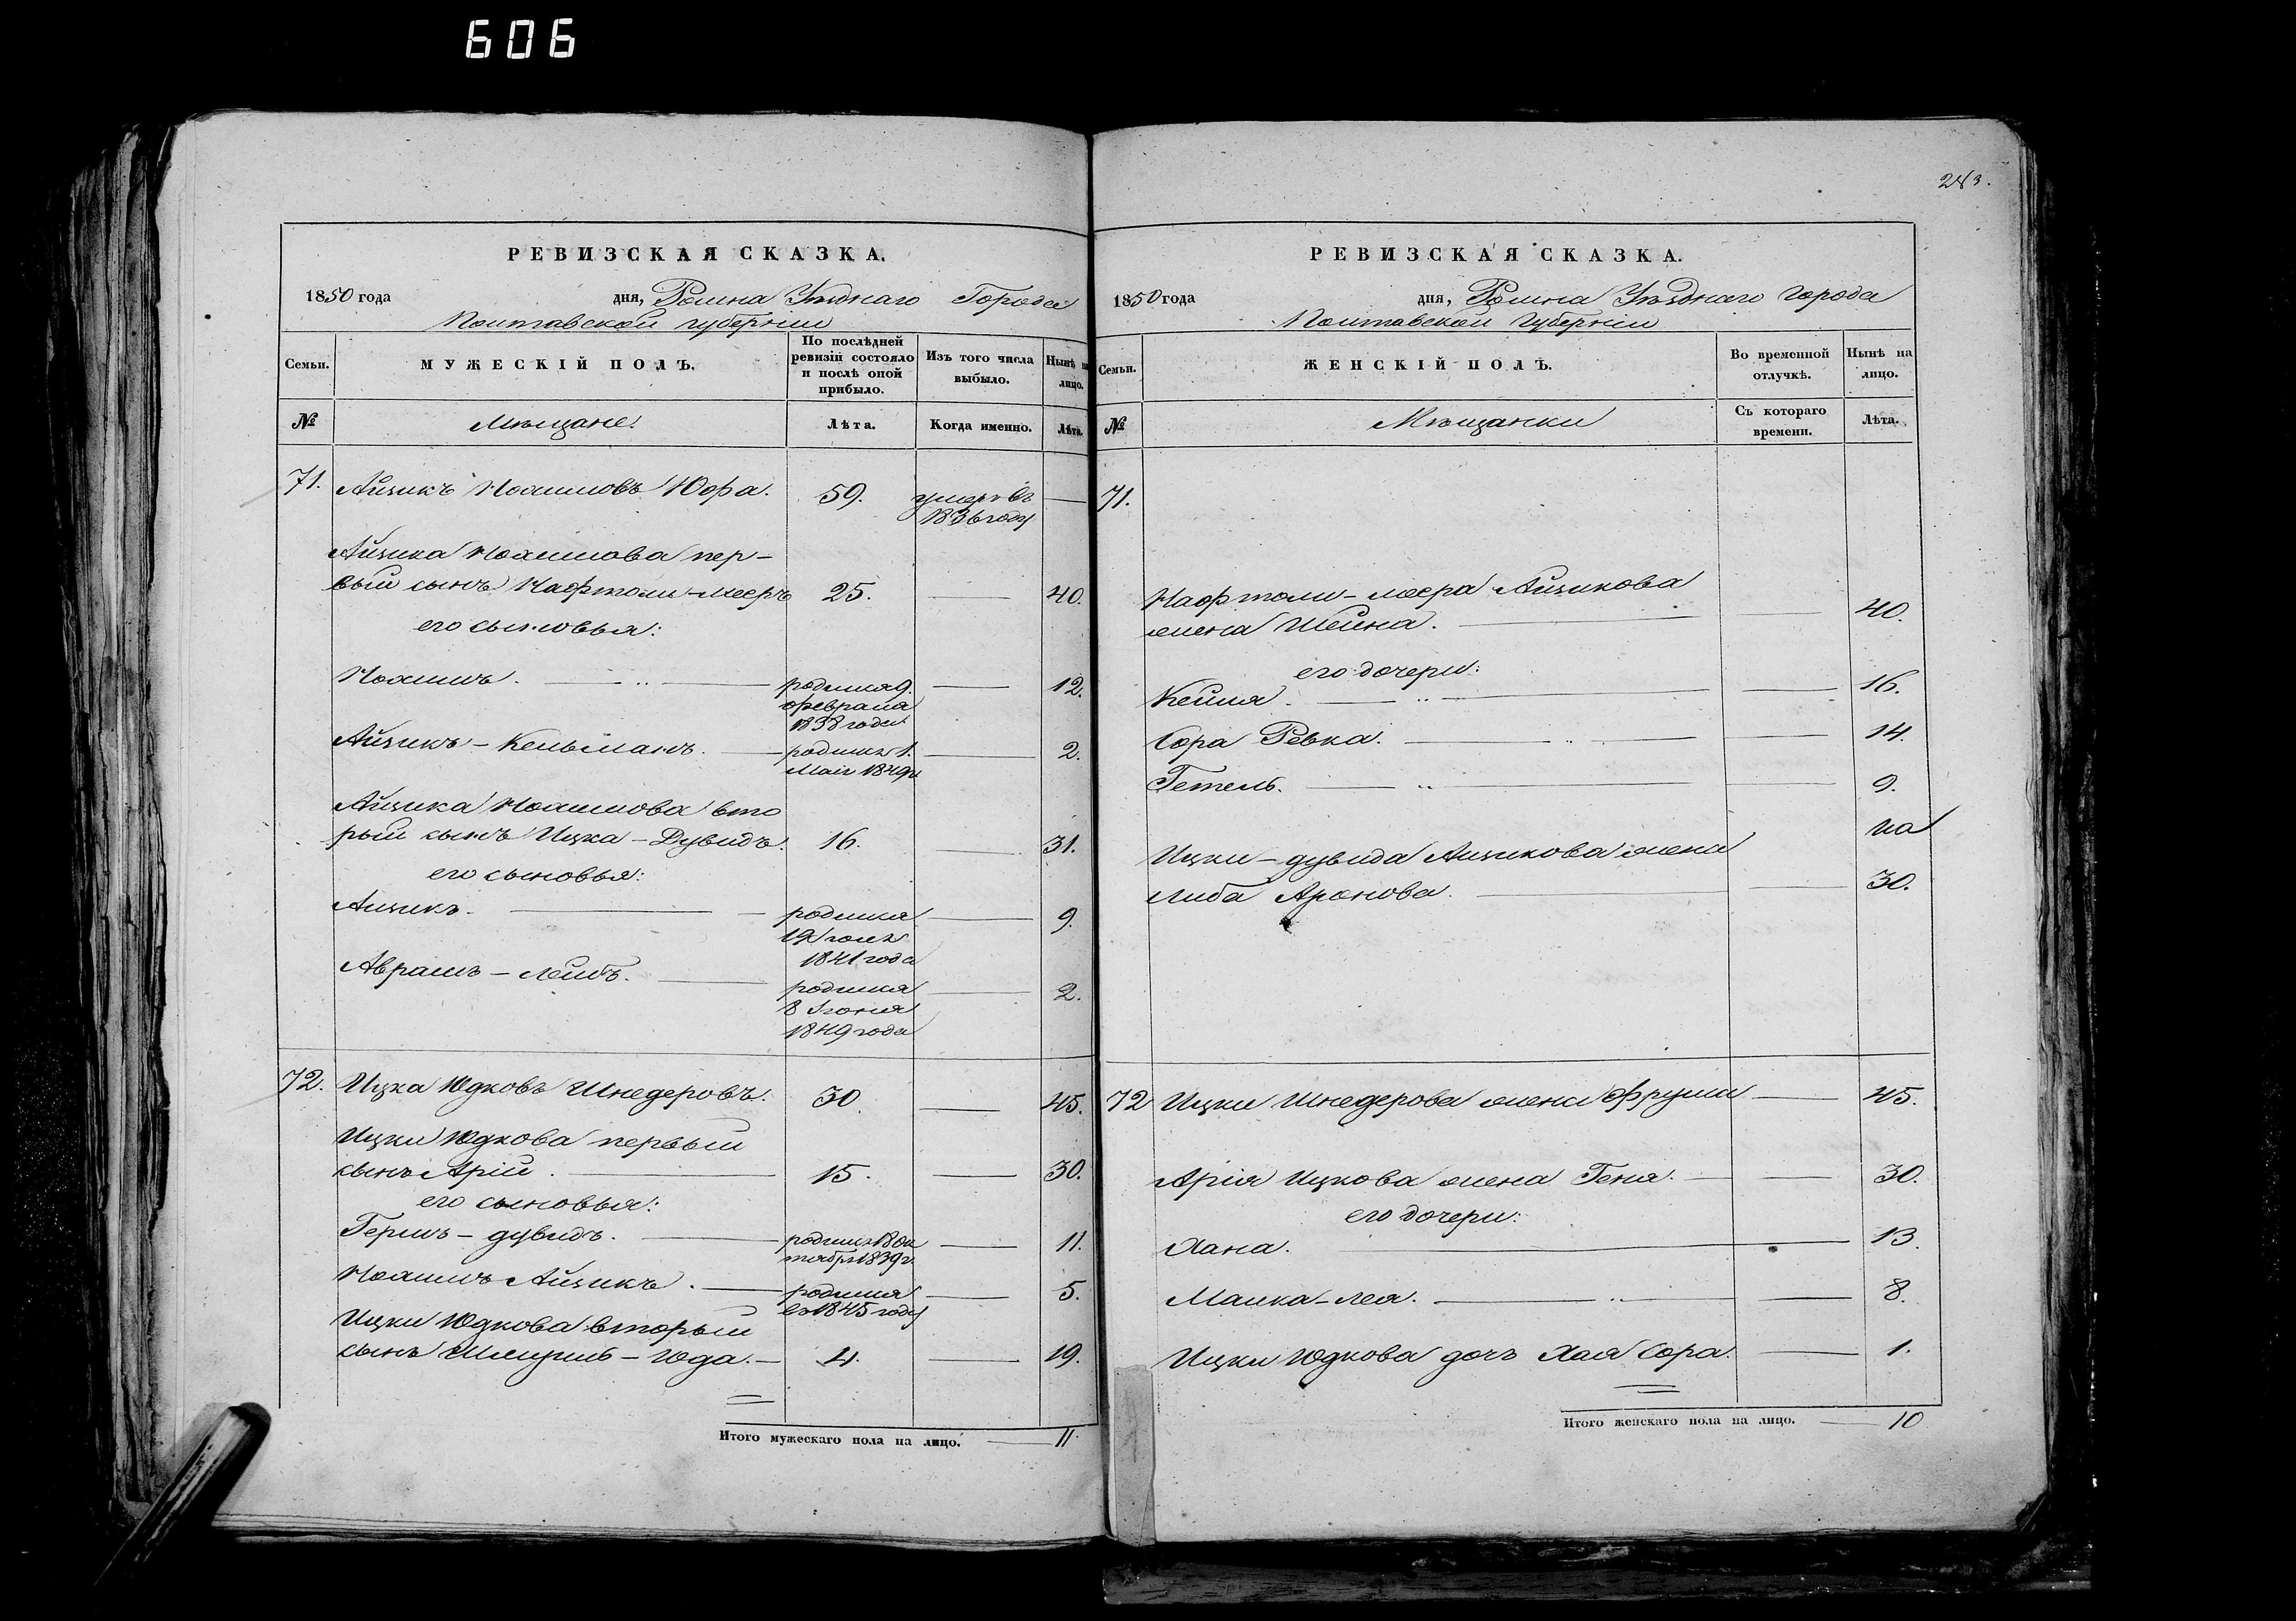 606
283.
РЕВИЗСКАЯ СКАЗКА.
1850 года дня, Ромна Уѣзднаго Города
Полтавской губерніи
Семьи.
МУЖЕСКІЙ ПОЛЪ.
По послѣдней ревизіи состояло и послѣ оной прибыло.
Изъ того числа выбыло.
Нынѣ на лицо.
№
Мѣщане
Лѣта.
Когда именно.
Лѣта.
71. Айзикъ Нохимовъ Юфа. 59. умеръ въ —
1836 году
Айзика Нохимова пер-
вый сынъ Нафтоли-Мееръ 25. — 40.
его сыновья:
Нохимъ. — родился 9. — 12.
февраля
1838 года
Айзикъ - Кельманъ. — родился 1. — 2.
Маія 1849г
Айзика Нохимова вто
рый сынъ Ицка - Дувидъ. 16. — 31.
его сыновья:
Айзикъ. — родился — 9.
19 Іюля
1841 года
Аврамъ - Лейбъ. — родился — 2.
8 Іюня
1849 года
72. Ицка Юдковъ Шнедеровъ. 30. — 45.
Ицки Юдкова первый
сынъ Арій. — 15. — 30.
его сыновья:
Гершъ - дувидъ. — родился 18 ок — 11.
тября 1839г.
Нохимъ Айзикъ. — родился — 5.
въ 1845 году
Ицки Юдкова вторый
сынъ Шмуиль - Юда. — 4. — 19.
Итого мужескаго пола на лицо. — 11
РЕВИЗСКАЯ СКАЗКА.
1850 года дня, Ромна Уѣзднаго Города
Полтавской Губерніи
Семьи.
ЖЕНСКІЙ ПОЛЪ.
Во временной отлучкѣ.
Нынѣ на лицо.
№
Мѣщанки
Съ котораго времени.
Лѣта.
71.
Нафтоли - меера Айзикова
жена Шейна. — 40.
его дочери:
Кейля. — 16.
Сора Ревка. — 14.
Гетель. — 9.
Ицки - дувида Айзикова жена
Либа Аронова. — 30.
72 Ицки Шнедерова жена Фрума — 45.
Арія Ицкова жена Геня. — 30.
его дочери:
Хана. — 13.
Малка - лея. — 8.
Ицки Юдкова дочь Хая Сора. — 1.
Итого женскаго пола на лицо. — 10